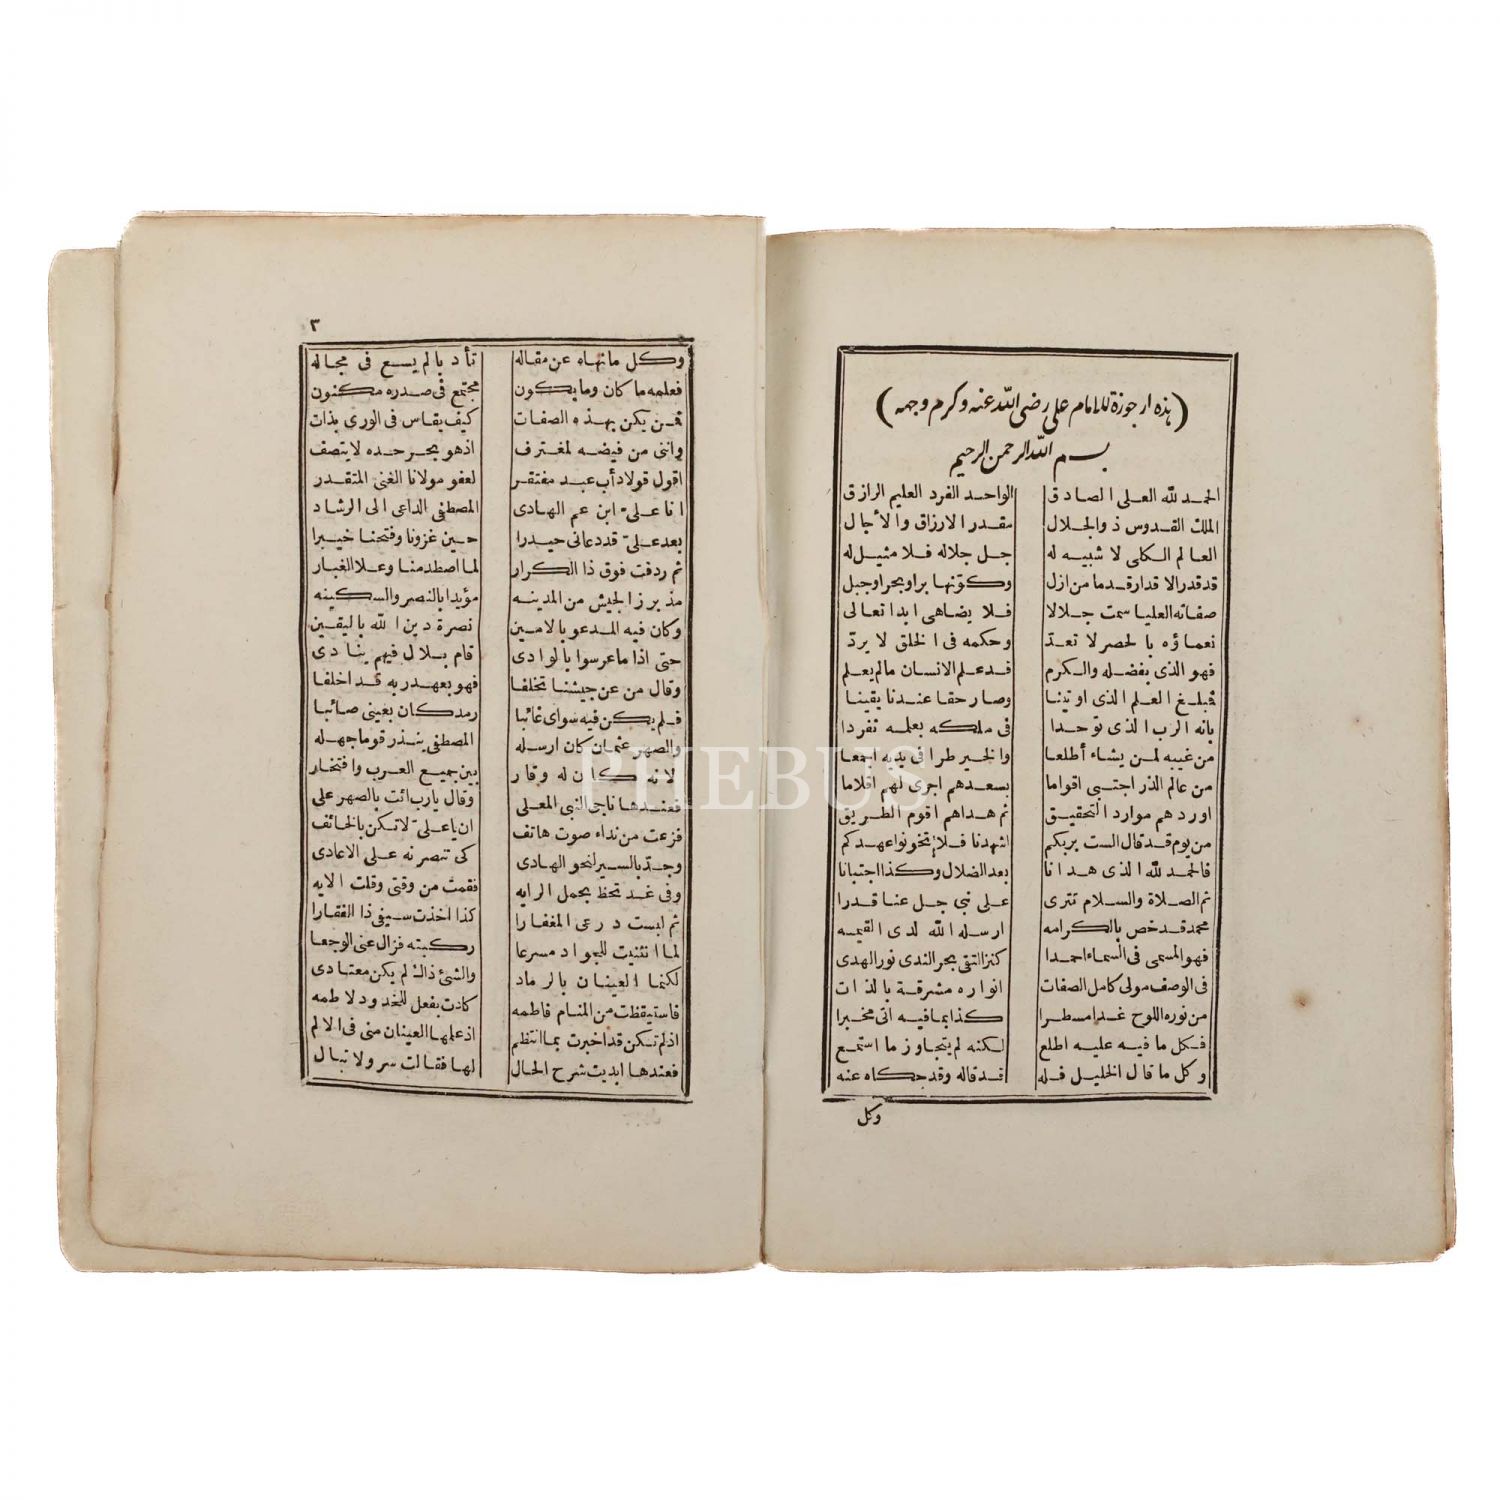 (هذه ارجوزة للامام على رضى الله عنه وكرم وجهه)
بسم الله الرحمن الرحيم
الحمد لله العلى الصادق الواحد الفرد العليم الرازق
الملك القدوس ذو الجلال مقدر الارزاق والأجال
العالم الكلى لا شبيه له جل جلاله فلا مثيل له
قد قدر الاقدار قدما من ازل وكوّنها برا وبحرا وجبل
صفاته العليا سمت جلالا فلا يضاهى ابدا تعالى
نعماؤه بالحصر لا تعد وحكمه فى الخلق لا يردّ
فهو الذى بفضله والكرم قد علم الانسان مالم يعلم
فبلغ العلم الذى اوتينا وصار حقا عندنا يقينا
بانه الرب الذى توحدا فى ملكه بعلمه تفردا
من غيبه لمن يشاء أطلعا والخير طرا فى يديه اجمعا
من عالم الذر اجتبى اقواما بسعدهم اجرى لهم اقلاما
اوردهم موارد التحقيق ثم هداهم اقوم الطريق
من يوم قد قال الست بربكم اشهدنا فلا تخونوا عهدكم
فالحمد لله الذى هدانا بعد الضلال وكذا اجتبانا
ثم الصلاة والسلام تترى على نبى جل عنا قدرا
محمد قد خص بالكرامه ارسله الله لدى القيمه
فهو المسمى فى السماء احمدا كنز التقى بحر الندى نور الهدى
فى الوصف مولى كامل الصفات انواره مشرقة بالذات
من نوره اللوح غدا مسطرا كذا بما فيه اتى مخبرا
فكل ما فيه عليه اطلع لكنه لم يتجاوز ما استمع
وكل ما قال الخليل قله قد قاله وقد حكاه عنه
وكل
٣
وكل ما نهاه عن مقاله تأدبا لم يسع فى مجاله
فعلمه ما كان وما يكون مجتمع فى صدره مكنون
فمن يكن بهذه الصفات كيف يقاس فى الورى بذات
واننى من فيضه لمغترف اذ هو بحر حده لا يتصف
اقول قولا دأب عبد مفتقر لعفو مولانا الغنى المقتدر
انا علىّ ابن عم الهادى المصطفى الداعى الى الرشاد
بعد علىّ قد دعانى حيدرا حين غزونا وفتحنا خيبرا
ثم ردفت فوق ذا الكرار لما اصطدمنا وعلا الغبار
مذ برز الجيش من المدينه مؤيدا بالنصر والسكينه
وكان فيه المدعو بالامين نصرة دين الله باليقين
حتى اذا ما عرسوا بالوادى قام بلال فيهم ينادى
وقال من عن جيشنا تخلفا فهو بعهد ربه قد اخلفا
فلم يكن فيه سواى غائبا رمد كان بعينى صائبا
والصهر عثمان كان ارسله المصطفى ينذر قوما جهله
لانه كان له وقار بين جميع العرب وافتخار
فعندها ناجى النبى المعلى وقال يارب ائت بالصهر على
فزعت من نداء صوت هاتف ان ياعلىّ لا تكن بالخائف
وجدّ بالسير لنحو الهادى كى تنصرنه على الاعادى
وفى غد تحظ بحمل الرايه فقمت من وقتى وقلت الايه
ثم لبست درعى المغفارا كذا اخذت سيفى ذا الفقارا
لما انثنيت للجواد مسرعا ركبته فزال عنى الوجعا
لكنما العينان بالرماد والشئ ذاك لم يكن معتادى
فاستيقظت من المنام فاطمه كادت بفعل للخدود لاطمه
اذ لم تكن قد اخبرت بما انتظم اذ علمها العينان منى فى الالم
فعندها ابديت شرح الحال لها فقالت سر ولا تبال
PHEBUS